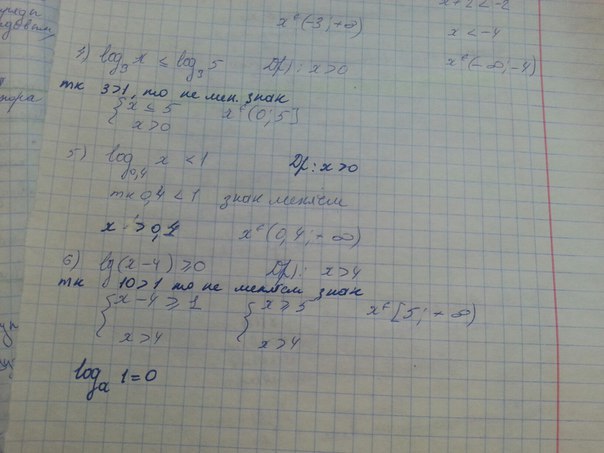 x+2 < -2
x^є(-3; +∞)
x < -4
x^є(-∞; -4)
1) log₃ x ≤ log₃ 5 D(f): x>0
тк 3>1, то не мен. знак
{ x ≤ 5 x^є(0; 5]
x>0
5) log₀,₄ x < 1 D(f): x>0
тк 0,4 < 1 знак меняем
x > 0,4 x^є(0,4; +∞)
6) lg(x-4) ≥ 0 D(f): x>4
тк 10>1 то не меняем знак
{ x-4 ≥ 1 { x ≥ 5 x^є[5; +∞)
x>4 x>4
logₐ 1=0